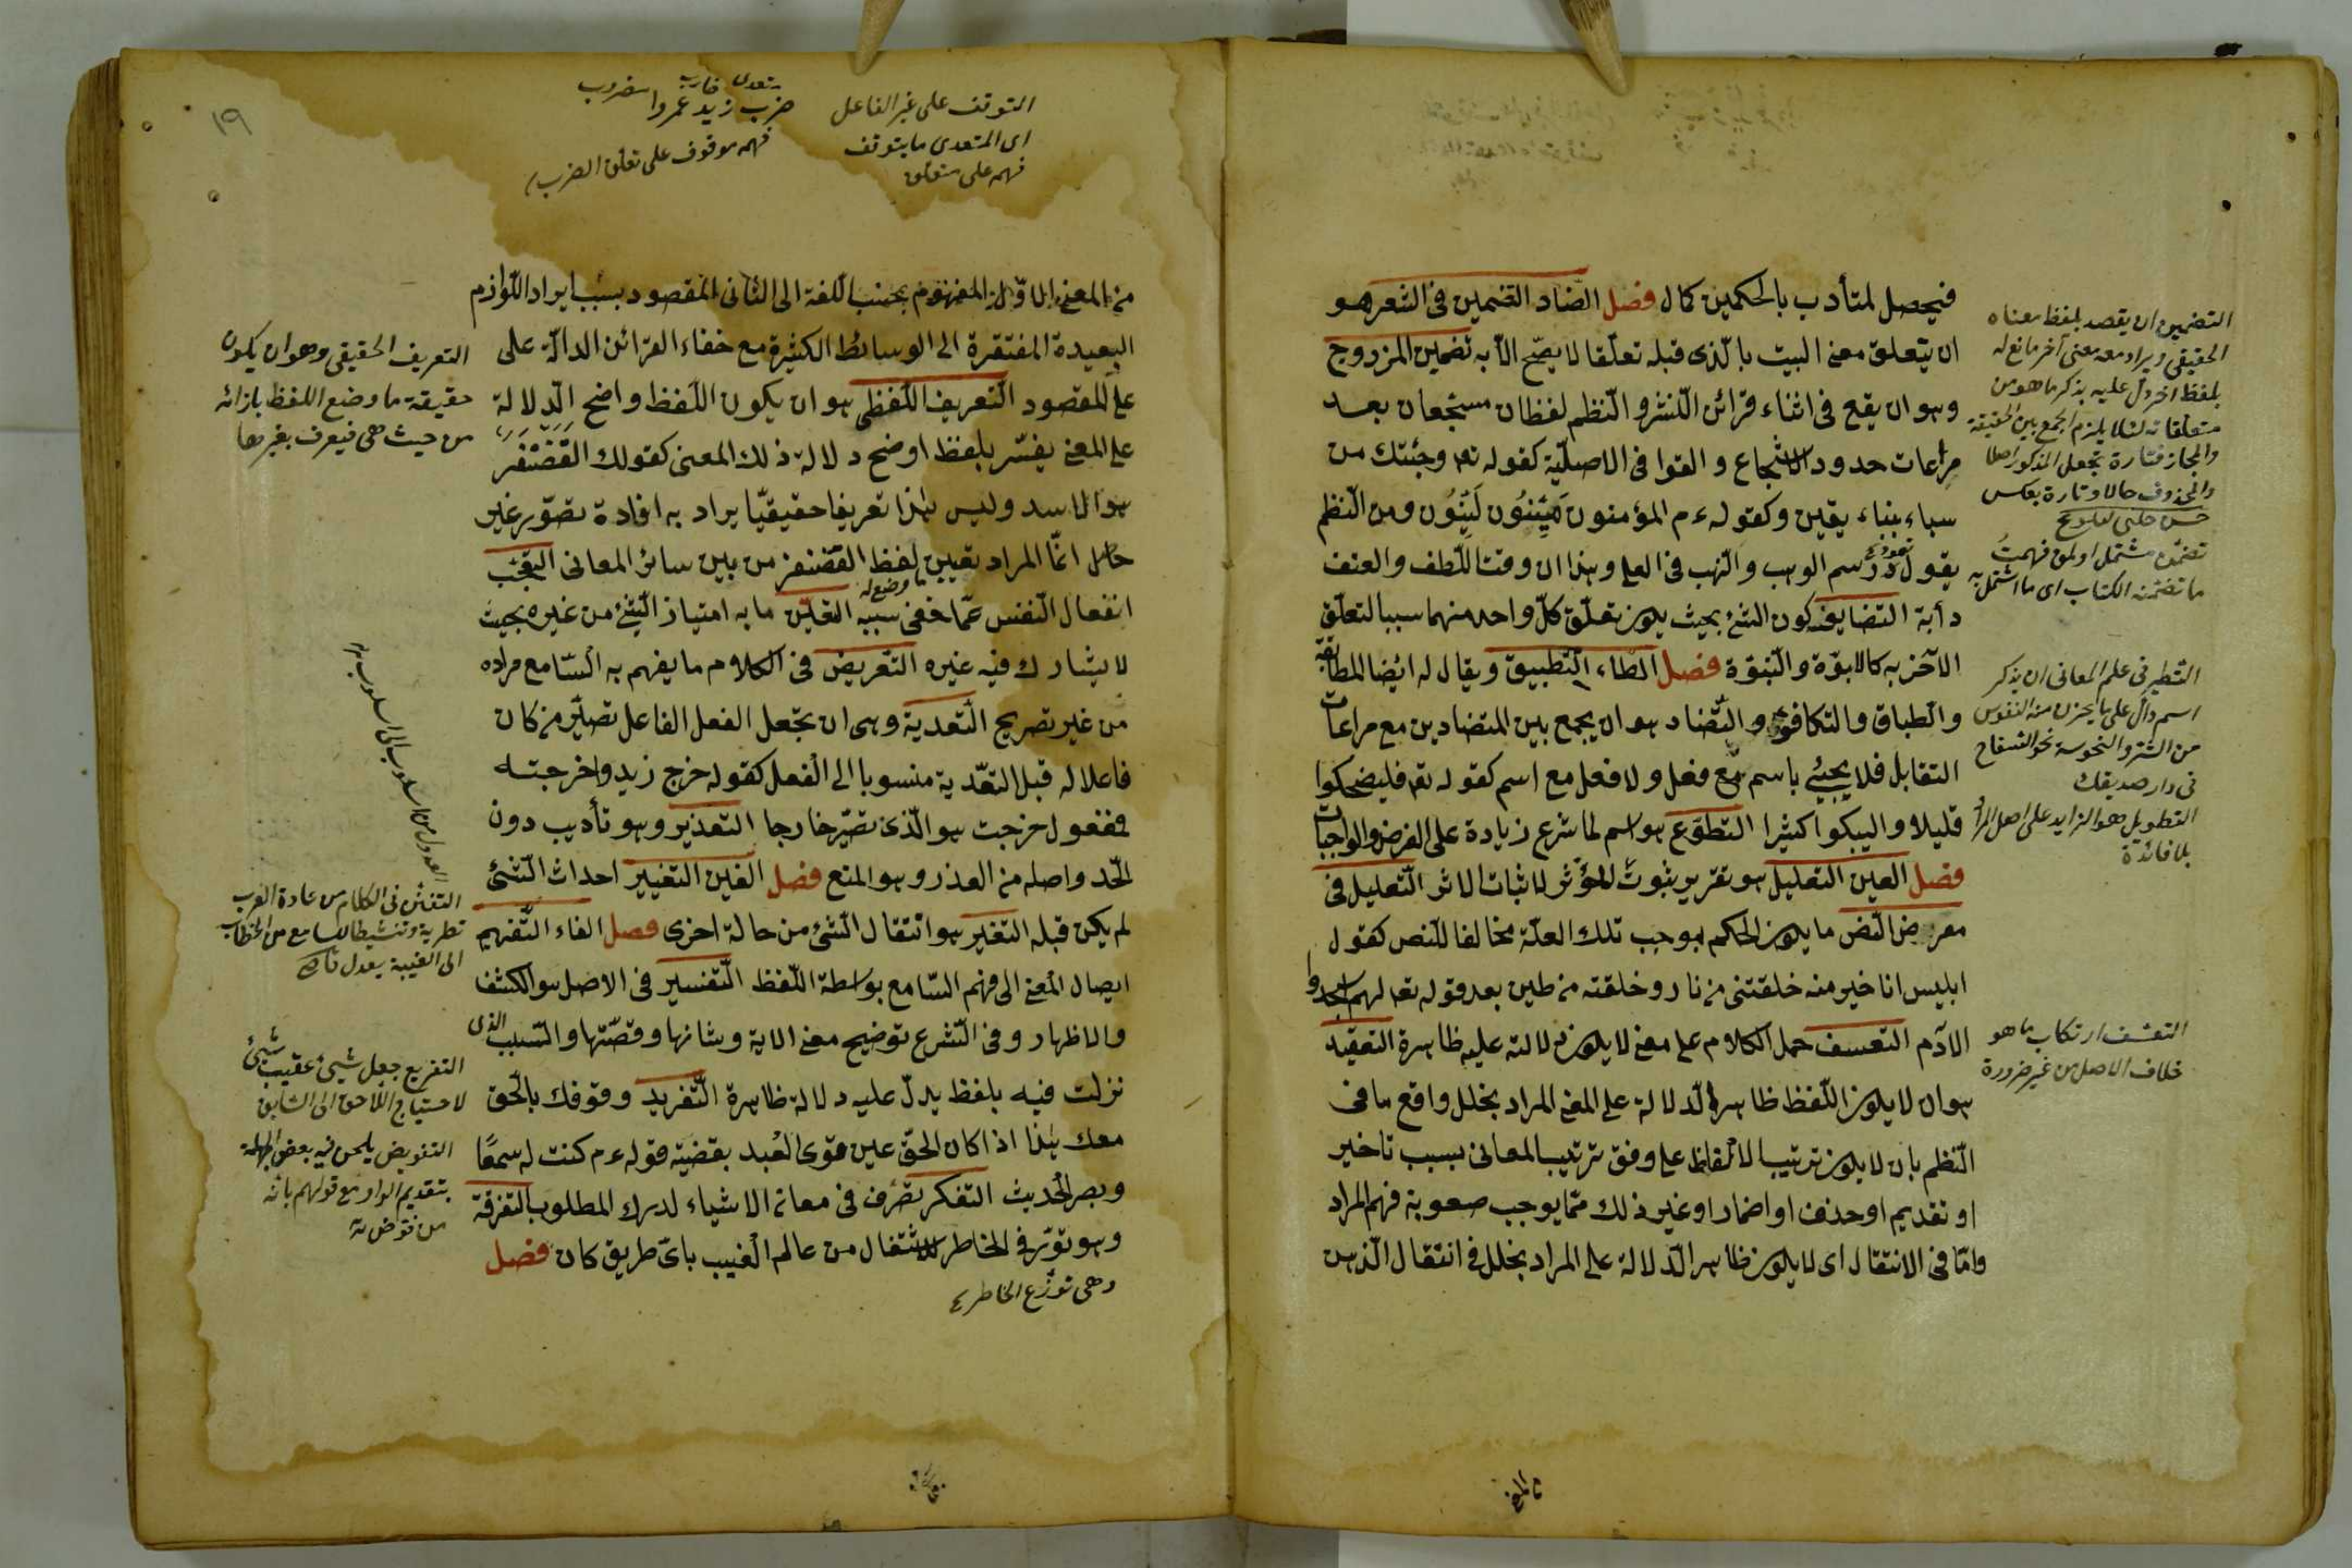 فيحصل لمتأدب بالحكمين كمال فصل الضاد التضمين فى الشعر هو
ان يتعلق معنى البيت بالذى قبله تعلقا لا يصح الا به تضمين المزدوج
وهو ان يقع فى اثناء قرائن النثر والنظم لفظان مسجعان بعد
مراعات حدود الاسجاع والقوافى الاصلية كقوله تعه وجئتك من
سباء بنباء يقين وكقوله ءم المؤمنون هينون لينون ومن النظم
تعود رسم الوهب والنهب فى العلى وهذان وقت اللطف والعنف
دأبه التضايف كون الشئ بحيث يكون تعلق كل واحد منهما سببا لتعلق
الآخر به كالابوة والنبوة فصل الطاء التطبيق ويقال له ايضا المطابقة
والطباق والتكافوء والتضاد هو ان يجمع بين المتضادين مع مراعات
التقابل فلا يجيئ باسم مع فعل ولا فعل مع اسم كقوله تعه فليضحكوا
قليلا وليبكوا كثيرا التطوع هو اسم لما شرع زيادة على الفرض والواجبات
فصل العين التعليل هو تقرير ثبوت المؤثر لاثبات الاثر التعليل فى
معرض النص ما يكون الحكم بموجب تلك العلة مخالفا للنص كقول
ابليس انا خير منه خلقتنى من نار وخلقته من طين بعد قوله تعه لهم اسجدوا
لآدم التعسف حمل الكلام على معنى لا يكون دلالته عليه ظاهرة التعقيد
هو ان لا يكون اللفظ ظاهر الدلالة على المعنى المراد بخلل واقع ما فى
النظم بان لا يكون ترتيب الالفاظ على وفق ترتيب المعانى بسبب تاخير
او تقديم او حذف او اضمار او غير ذلك مما يوجب صعوبة فهم المراد
واما فى الانتقال اى لا يكون ظاهر الدلالة على المراد بخلل فى انتقال الذهن
التضمين ان يقصد بلفظ معناه
الحقيقى ويراد معه معنى آخر مانع له
بلفظ اخر دل عليه بذكر ما هو من
متعلقاته لئلا يلزم الجمع بين الحقيقة
والمجاز فتارة يجعل المذكور اصلا
والمحذوف حالا وتارة بعكس
حسن چلبى تلويح
تضمن مشتمل اولمق فهمت
ما تضمنه الكتاب اى ما اشتمل به
التطير فى علم المعانى ان يذكر
اسم دال على ما يحزن منه النفوس
من الشر والنحوسة نحو السفاح
فى دار صديقك
التطويل هو الزايد على اصل المراد
بلا فائدة
التعسف ارتكاب ما هو
خلاف الاصل من غير ضرورة
من المعنى
١٩
التوقف على غير الفاعل
اى المتعدى ما يتوقف
فهمه على متعلق
متعدى ضارب مضروب
ضرب زيد عمروا
فهمه موقوف على تعلق الضرب
من المعنى الاول المفهوم بحسب اللغة الى الثانى المقصود بسبب ايراد اللوازم
البعيدة المفتقرة الى الوسائط الكثيرة مع خفاء القرائن الدالة على
على المقصود التعريف اللفظى هو ان يكون اللفظ واضح الدلالة
على المعنى يفسر بلفظ اوضح دلالة ذلك المعنى كقولك الغضنفر
هو الاسد وليس هذا تعريفا حقيقيا يراد به افادة تصور غير
حاصل انما المراد تعيين لفظ الغضنفر من بين سائر المعانى التعجب
ما وضع له
انفعال النفس عما خفى سببه التعين ما به امتياز الشئ من غيره بحيث
لا يشارك فيه غيره التعريض فى الكلام ما يفهم به السامع مراده
من غير تصريح التعدية وهى ان تجعل الفعل الفاعل تصير من كان
فاعلا له قبل التعدية منسوبا الى الفعل كقوله خرج زيد واخرجته
فمفعول خرجت هو الذى تصير خارجا التعذير وهو تأديب دون
الحد واصله من العذر وهو المنع فصل الغين التغيير احداث الشئ
لم يكن قبله التغير هو انتقال الشئ من حالة اخرى فصل الفاء التفهيم
ايصال المعنى الى فهم السامع بواسطة اللفظ التفسير فى الاصل هو الكشف
والاظهار وفى الشرع توضيح معنى الاية وشانها وقصتها والسبب الذى
نزلت فيه بلفظ يدل عليه دلالة ظاهرة التفريد وقوفك بالحق
معك هذا اذا كان الحق عين قوى العبد بقضية قوله ءم كنت له سمعا
وبصر الحديث التفكر تصرف فى معانى الاشياء لدرك المطلوب التفرقة
وهو توزع الخاطر للاشتغال من عالم الغيب باى طريق كان فصل
وهى توزع الخاطر
التعريف الحقيقى وهو ان يكون
حقيقة ما وضع اللفظ بازائه
من حيث هى فيعرف بغيرها
العدول من اسلوب الى اسلوب
التفنن فى الكلام من عادة العرب
تطرية وتنشيطا للسامع من الخطاب
الى الغيبة يعدل تارة
التفريع جعل شيئ عقيب شيئ
لاحتياج اللاحق الى السابق
التفويض يلحن فيه بعض الجهلة
بتقديم الواو مع قولهم بانه
من فوض